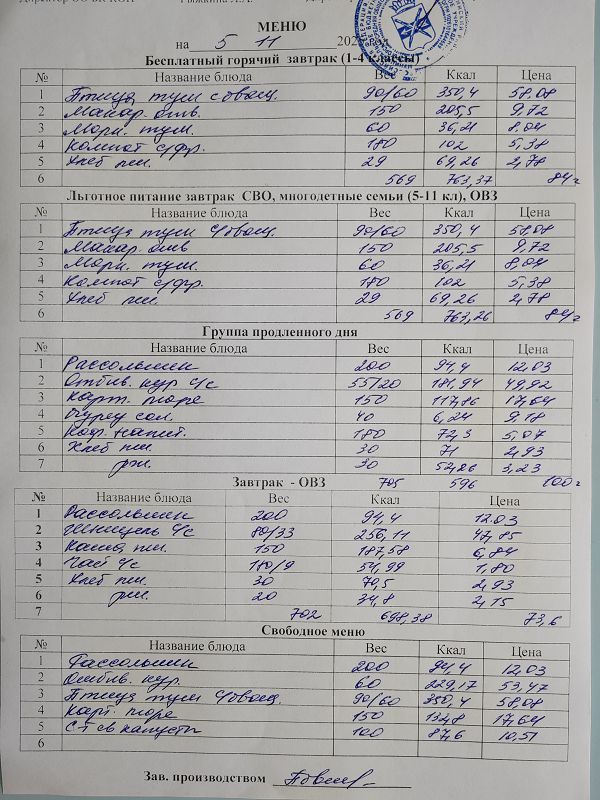 МЕНЮ
на 5 11 202 год
Бесплатный горячий завтрак (1-4 классы)
№ Название блюда Вес Ккал Цена
1 Птица туш с овощ. 90/60 350,4 58.08
2 Макар. отв. 150 205,5 9,72
3 Морк. туш. 60 36,21 8,04
4 Компот с/фр. 180 102 5,38
5 Хлеб пш. 29 69,26 2,78
6 569 763,37 84 г
Льготное питание завтрак СВО, многодетные семьи (5-11 кл), ОВЗ
№ Название блюда Вес Ккал Цена
1 Птица туш с/овощ. 90/60 350,4 58.08
2 Макар отв 150 205,5 9,72
3 Морк. туш. 60 36,21 8,04
4 Компот с/фр. 180 102 5,38
5 Хлеб пш. 29 69,26 2,78
6 569 763,26 84 г
Группа продленного дня
№ Название блюда Вес Ккал Цена
1 Рассольник 200 94,4 12,03
2 Отбив. кур с/с 55/20 181,94 49,92
3 Карт. пюре 150 117,86 17,64
4 Огурец сол. 40 6,24 9,18
5 Коф. напит. 180 72,3 5,07
6 Хлеб пш. 30 71 2,93
7 рж. 30 52,26 3,23
Завтрак - ОВЗ 705 596 100 г
№ Название блюда Вес Ккал Цена
1 Рассольник 200 94,4 12.03
2 Шницель с/с 80/33 256,11 47,85
3 Каша пш. 150 187,58 6,84
4 Чай с/с 180/9 54,99 1,80
5 Хлеб пш. 30 70,5 2,93
6 рж. 20 34,8 2,15
7 702 698,38 73,6
Свободное меню
№ Название блюда Вес Ккал Цена
1 Рассольник 200 94,4 12,03
2 Отбив. кур. 60 229,17 53,47
3 Птица туш с/овощ. 90/60 350,4 58,08
4 Карт. пюре 150 132,8 17,64
5 С-т св капусты 100 87,6 10,51
6
Зав. производством